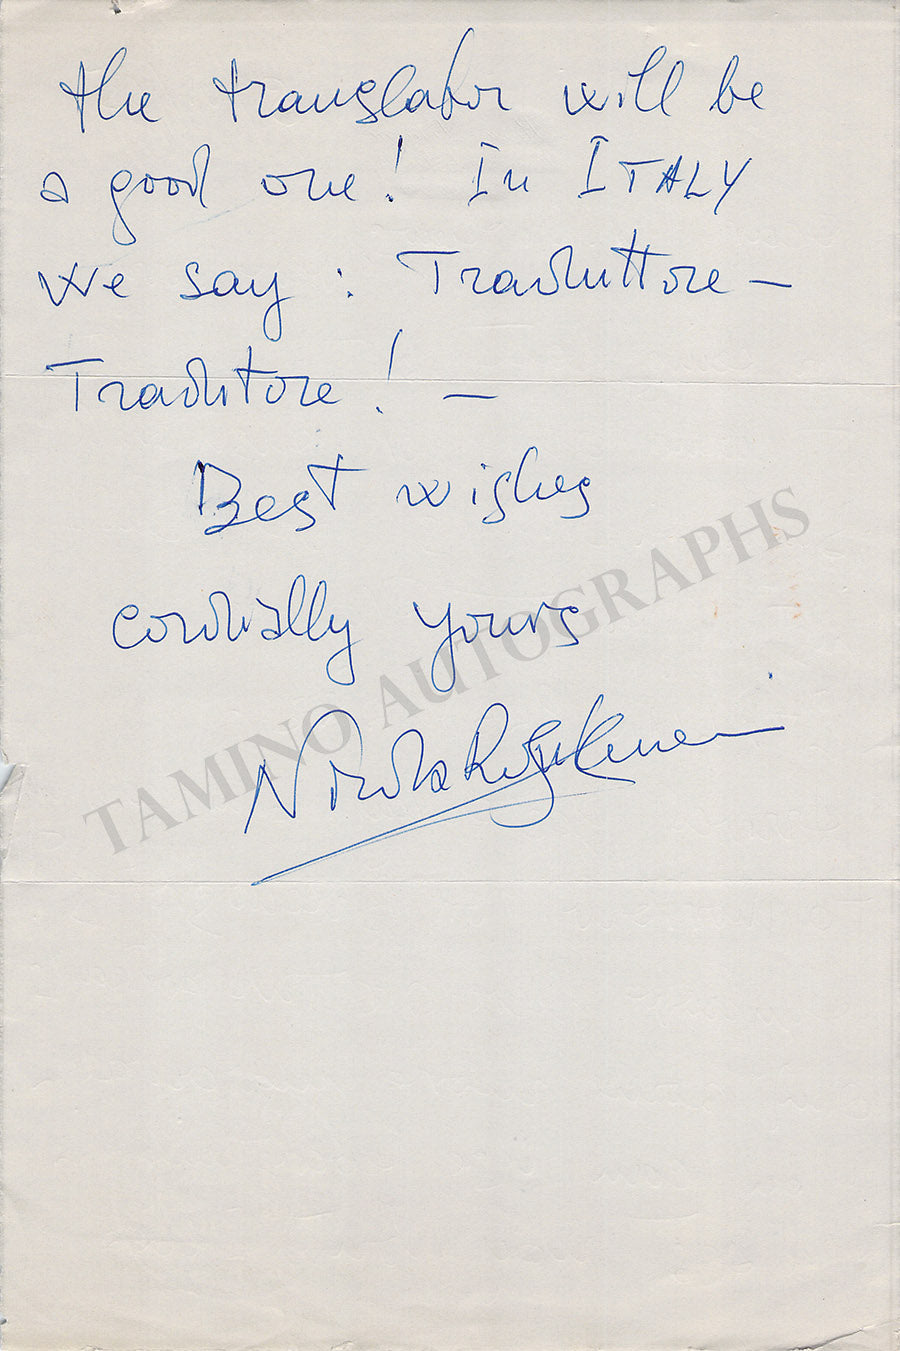 the translator will be
a good one! In ITALY
we say: Traduttore —
Tradutore! —
Best wishes
cordially yours
Nicola Rossi-Lemeni
TAMINO AUTOGRAPHS